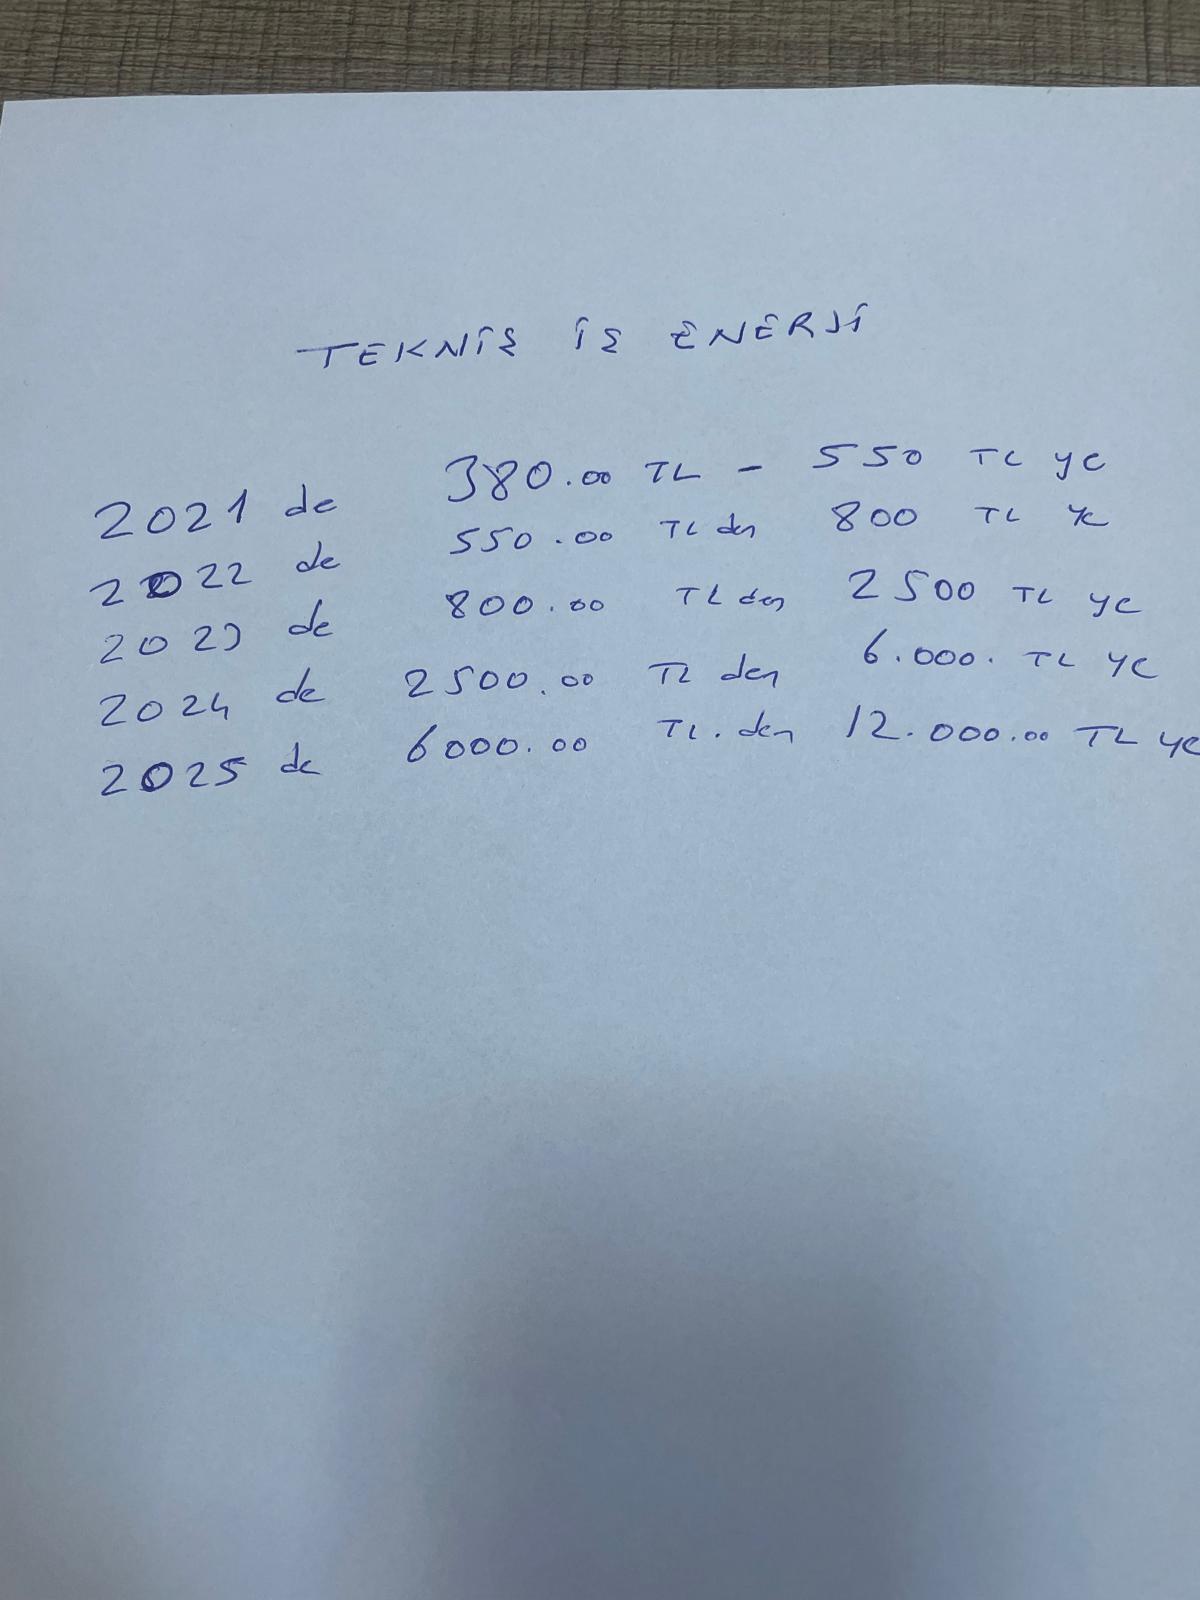 TEKNİŞ İŞ ENERJİ
2021 de 380.00 TL - 550 TL ye
2022 de 550.00 TL den 800 TL ye
2023 de 800.00 TL den 2500 TL ye
2024 de 2500.00 TL den 6.000. TL ye
2025 de 6000.00 TL. den 12.000.00 TL ye